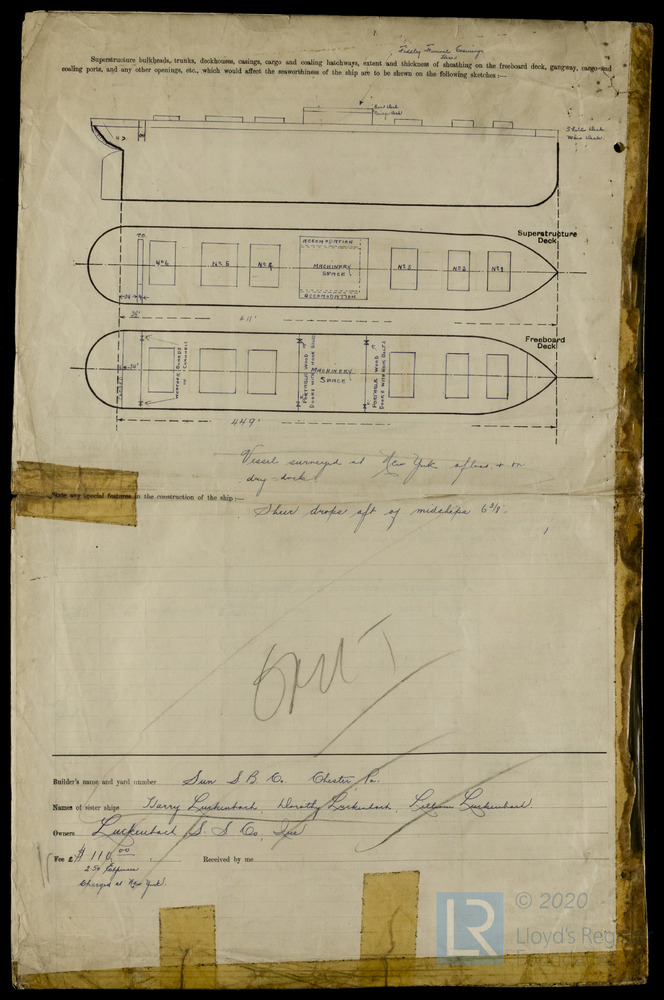 Superstructure bulkheads, trunks, deckhouses, casings, cargo and coaling hatchways, extent and thickness of sheathing on the freeboard deck, gangway, cargo and
coaling ports, and any other openings, etc., which would affect the seaworthiness of the ship are to be shewn on the following sketches :—
Boat deck
Shelter deck
Main deck
Superstructure
Deck
ACCOMODATION
T.O.
No 6
No 5
No 4
MACHINERY
SPACE
No 3
No 2
No 1
ACCOMODATION
25'
411'
Freeboard
Deck
WEATHER BOARDS
IN CHANNELS
PORTABLE WOOD
DOORS WITH HOOK BOLTS
MACHINERY
SPACE
PORTABLE WOOD
DOORS WITH HOOK BOLTS
449'
Vessel surveyed at New York afloat & in
dry dock
State any special features in the construction of the ship :—
Sheer drops aft of midships 6 3/8".
Builder's name and yard number Sun S B. Co. Chester Pa.
Names of sister ships Harry Luckenbach, Dorothy Luckenbach, Lillian Luckenbach
Owners Luckenbach S. S Co, Inc
Fee £ $ 110.00 Received by me
2.50 Expenses
Charged at New York.
LR © 2020
Lloyd's Reg